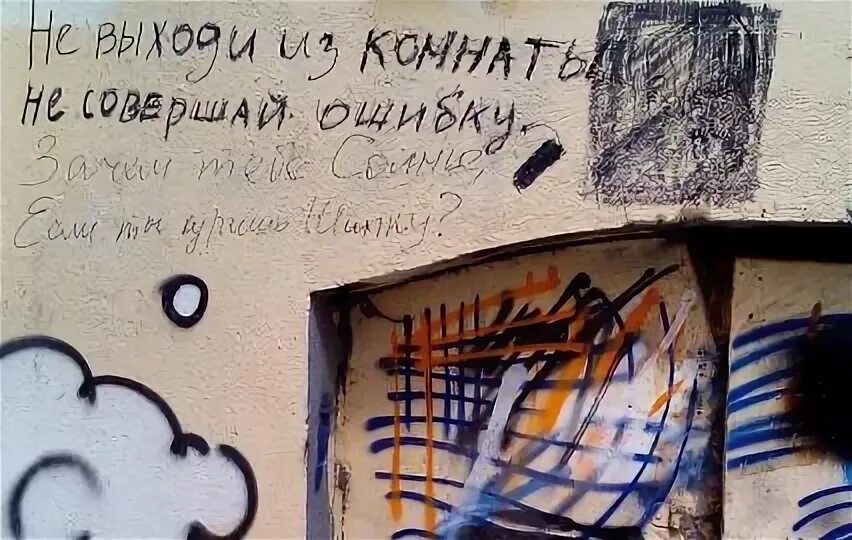 Не выходи из комнаты
не совершай ошибку.
Зачем тебе Солнце,
Если ты куришь Шипку?